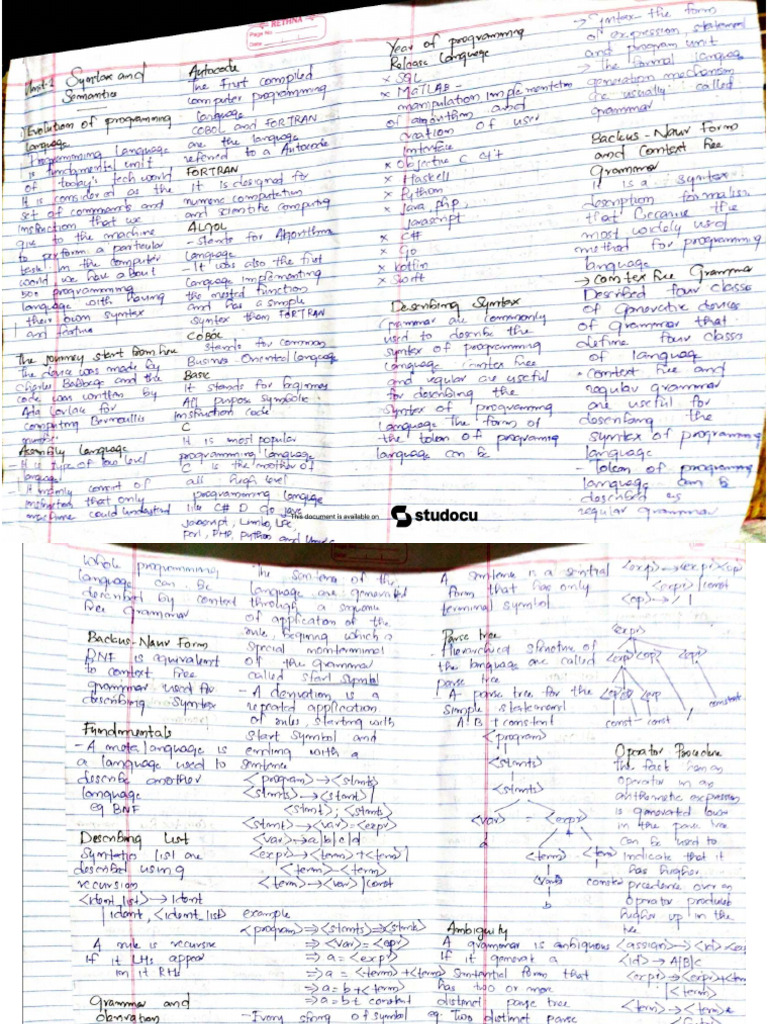 RETHNA
Page No.
Date:
Unit-1 Syntax and
Semantics
1) Evolution of programming
language
Programming language
is fundamental unit
of today's tech world
It is considered as the
set of commands and
instruction that we
give to the machine
to perform a particular
task. In the computer
world we have about
500 programming
language with having
their own syntex
and
The journey start from here
The device was made by
Charles Babbage and the
code was written by
Ada for
computing
Assembly language
- It is type of low level
language
- It mainly consist of
instruction that only
machine could understand
Autocode
The first compiled
computer programming
language
COBOL and FORTRAN
are the language
referred to a Autocode
FORTRAN
It is designed for
numeric computation
and scientific computing
ALGOL
- stands for Algorithm
Language
- It was also the first
language implementing
the nested function
and has a simple
syntex than FORTRAN
COBOL
stands for common
Business Oriental language
Basic
It stands for beginners
All purpose symbolic
Instruction code
C
It is most popular
programming language
C is the mother of
all high level
programming language
like C# D go java
Javascript,
Perl, PHP, python and
Year of programming
Release language
x SQL
x MATLAB -
manipulation
of algorithm and
creation of user
Interface
x Objective C
x Haskell
x Python
x Java, php,
Javascript
x C#
x Go
x Kotlin
x Swift
Describing Syntex
Grammar are commonly
used to describe the
syntex of programming
language context free
and regular are useful
for describing the
syntex of programming
language The form of
the token of programing
language can be
→ Syntex - the form
of expression, statement
and program unit
→ The formal language
generation mechanism
are usually called
grammar
Backus-Naur Form
and Context free
grammar
It is a syntex
description formalism
that became the
most widely used
method for programming
language
→ Contex free Grammar
Described four classes
of generative devices
of grammar that
define four classes
of language
• context free and
regular grammar
are useful for
describing the
syntex of programming
language
- token of programming
language can be
described e.g
regular grammar
This document is available on
studocu
Whole programming
language can be
described by context
free grammar
Backus-Naur Form
BNF is equivalent
to context free
grammar used for
describing syntex
Fundmentals
- A meta language is
a language used to
describe another
language
eg BNF
Describing List
Syntetic list are
described using
recursion
<ident_list> → ident
| ident, <ident_list>
A rule is recursive
if it LHS appear
in it RHS
Grammar and
derivation
The sentence of the
language are generated
through a sequence
of application of the
rule, begining which is
special nonterminal
of the grammar
called start symbol
- A derivation is a
repeated application
of rules, starting with
start symbol and
ending with a
sentence
<program> → <stmts>
<stmts> → <stmt> |
<stmt> ; <stmts>
<stmt> → <var> = <expr>
<var> → a|b|c|d
<expr> → <term> + <term> |
<term> - <term>
<term> → <var> | const
example
<program> ⇒ <stmts> ⇒ <stmt>
⇒ <var> = <expr>
⇒ a = <expr>
⇒ a = <term> + <term>
⇒ a = b + <term>
⇒ a = b + constant
- Every string of symbol
A sentence is a sential
form that has only
terminal symbol
Parse tree
- Hierarchical structure of
the language are called
parse tree
- A parse tree for the
simple statement
A = B + constant
<program>
<stmts>
<stmts>
<var> = <expr>
a
<term> + <term>
<var> const
b
Ambiguity
A grammar is ambiguous
if it generat a
sentential form that
has two or more
distinct parse tree
eg. Two distinct parse
<expr> → <expr> <op>
<expr> | const
<op> → / |
<expr>
<expr> <op> <expr>
<expr> <op> <expr>
const - const / constant
Operator Precedence
The fact
operator in an
arithmetic expression
is generated lower
in the parse tree
can be used to
indicate that it
has higher
precedence over an
operator produced
higher up in the
tree.
<assign> → <id> <exp
<id> → A|B|C
<expr> → <expr> + <term
| <term>
<term> → <term>